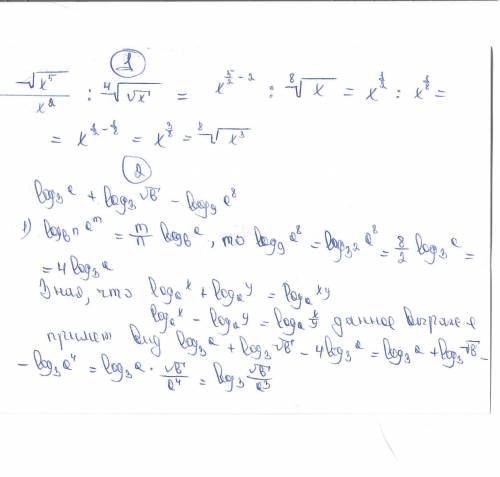 1
√x⁵/x² : ⁴√√x = x^(5/2 - 2) : ⁸√x = x^(1/2) : x^(1/8) =
= x^(1/2 - 1/8) = x^(3/8) = ⁸√x³
2
log₃a + log₃√b - log₉a⁸
1) log_(bⁿ)aᵐ = m/n log_b a, то log₉a⁸ = log_(3²)a⁸ = 8/2 log₃a =
= 4log₃a
Зная, что logₐx + logₐy = logₐxy
logₐx - logₐy = logₐx/y данное выражен
примет вид log₃a + log₃√b - 4log₃a = log₃a + log₃√b -
- log₃a⁴ = log₃a · √b/a⁴ = log₃ √b/a³